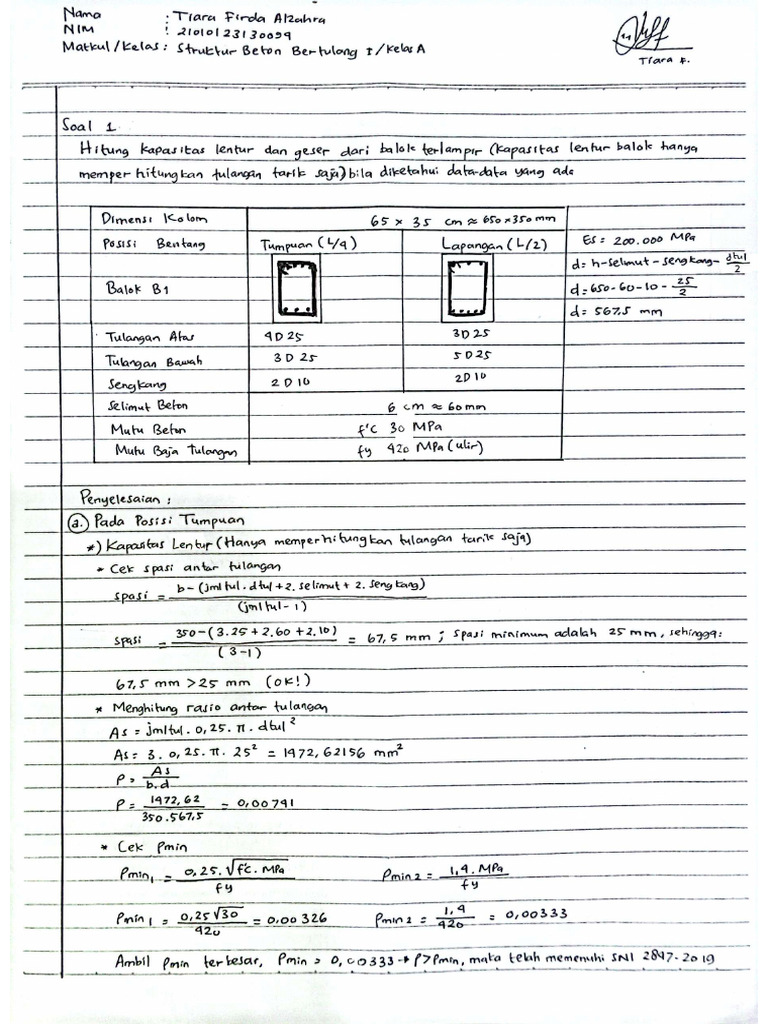 Nama : Tiara Firda Alzahra
NIM : 2101012313​0099
Matkul/Kelas : Struktur Beton Bertulang I/Kelas A
Tiara F.
Soal 1
Hitung Kapasitas lentur dan geser dari balok terlampir (kapasitas lentur balok hanya
memperhitungkan tulangan tarik saja) bila diketahui data-data yang ada
Dimensi Kolom 65 × 35 cm ≈ 650×350 mm
Posisi Bentang Tumpuan (L/4) Lapangan (L/2)
Balok B1
Tulangan Atas 4D25 3D25
Tulangan Bawah 3D25 5D25
Sengkang 2D10 2D10
Selimut Beton 6 cm ≈ 60mm
Mutu Beton f'c 30 MPa
Mutu Baja Tulangan fy 420 MPa (ulir)
Es = 200.000 MPa
d= h-selimut-sengkang-dtul/2
d=650-60-10-25/2
d= 567,5 mm
Penyelesaian :
a. Pada Posisi Tumpuan
*) Kapasitas Lentur (Hanya memperhitungkan tulangan tarik saja)
* Cek spasi antar tulangan
spasi = b-(jml tul. dtul + 2. selimut + 2. sengkang)/(jml tul-1)
spasi = 350-(3.25+2.60+2.10)/(3-1) = 67,5 mm ; spasi minimum adalah 25 mm, sehingga:
67,5 mm > 25 mm (OK!)
* Menghitung rasio antar tulangan
As = jmltul. 0,25. π. dtul²
As= 3. 0,25. π. 25² = 1472,62156 mm²
ρ = As/b.d
ρ = 1472,62/350.567,5 = 0,00741
* Cek ρmin
ρmin₁ = 0,25.√f'c. MPa/fy ρmin 2 = 1,4. MPa/fy
ρmin 1 = 0,25√30/420 = 0,00326 ρmin 2 = 1,4/420 = 0,00333
Ambil ρmin terbesar, ρmin = 0,00333 → ρ>ρmin, maka telah memenuhi SNI 2847-2019